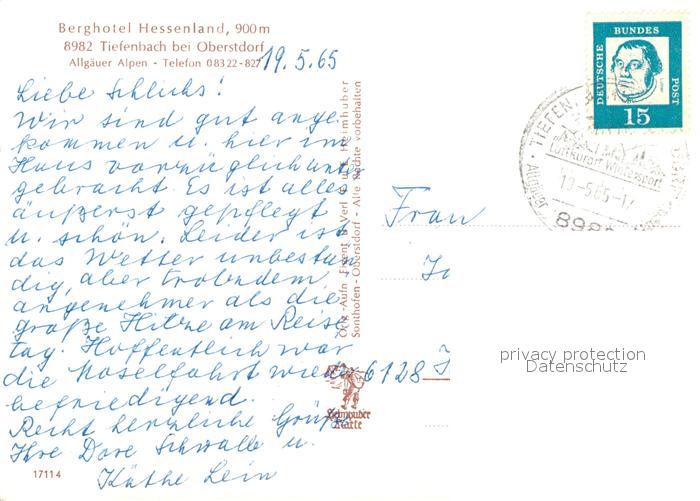 Berghotel Hessenland, 900m
8982 Tiefenbach bei Oberstdorf
Allgäuer Alpen - Telefon 08322-827
19.5.65
Liebe Schlichs!
Wir sind gut ange-
kommen u. hier im
Haus vorzüglich unter-
gebracht. Es ist alles
äußerst gepflegt
u. schön. Leider ist
das Wetter unbestän-
dig, aber trotzdem
angenehmer als die
große Hitze am Reise-
tag. Hoffentlich war
die Moselfahrt wieder
befriedigend.
Recht herzliche Grüße
Ihre Dore Schwalb u.
Käthe Lein
17114
Orig.-Aufn. Eigent. u. Verl. Heimhuber
Sonthofen - Oberstdorf - Alle Rechte vorbehalten
Schmauder
Karte
DEUTSCHE BUNDES POST
Luther
15
TIEFENB
Luftkurort Wintersport
19-5.65-17
898
Frau
6128
privacy protection
Datenschutz